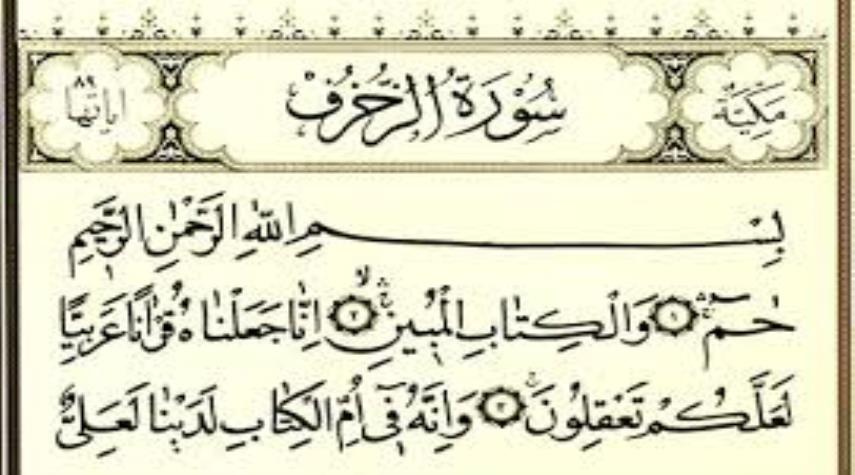 مكية سورة الزخرف اياتها ٨٩
بِسْمِ اللّٰهِ الرَّحْمٰنِ الرَّح۪يمِ
حٰمٓۜ ﴿١﴾ وَالْكِتَابِ الْمُب۪ينِۙۛ ﴿٢﴾ اِنَّا جَعَلْنَاهُ قُرْاٰنًا عَرَبِيًّا
لَعَلَّكُمْ تَعْقِلُونَۚ ﴿٣﴾ وَاِنَّهُ ف۪ٓي اُمِّ الْكِتَابِ لَدَيْنَا لَعَلِيٌّ